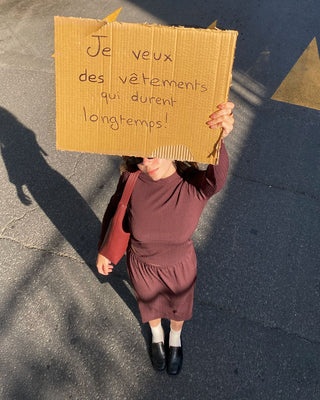 Je veux
des vêtements
qui durent
longtemps!